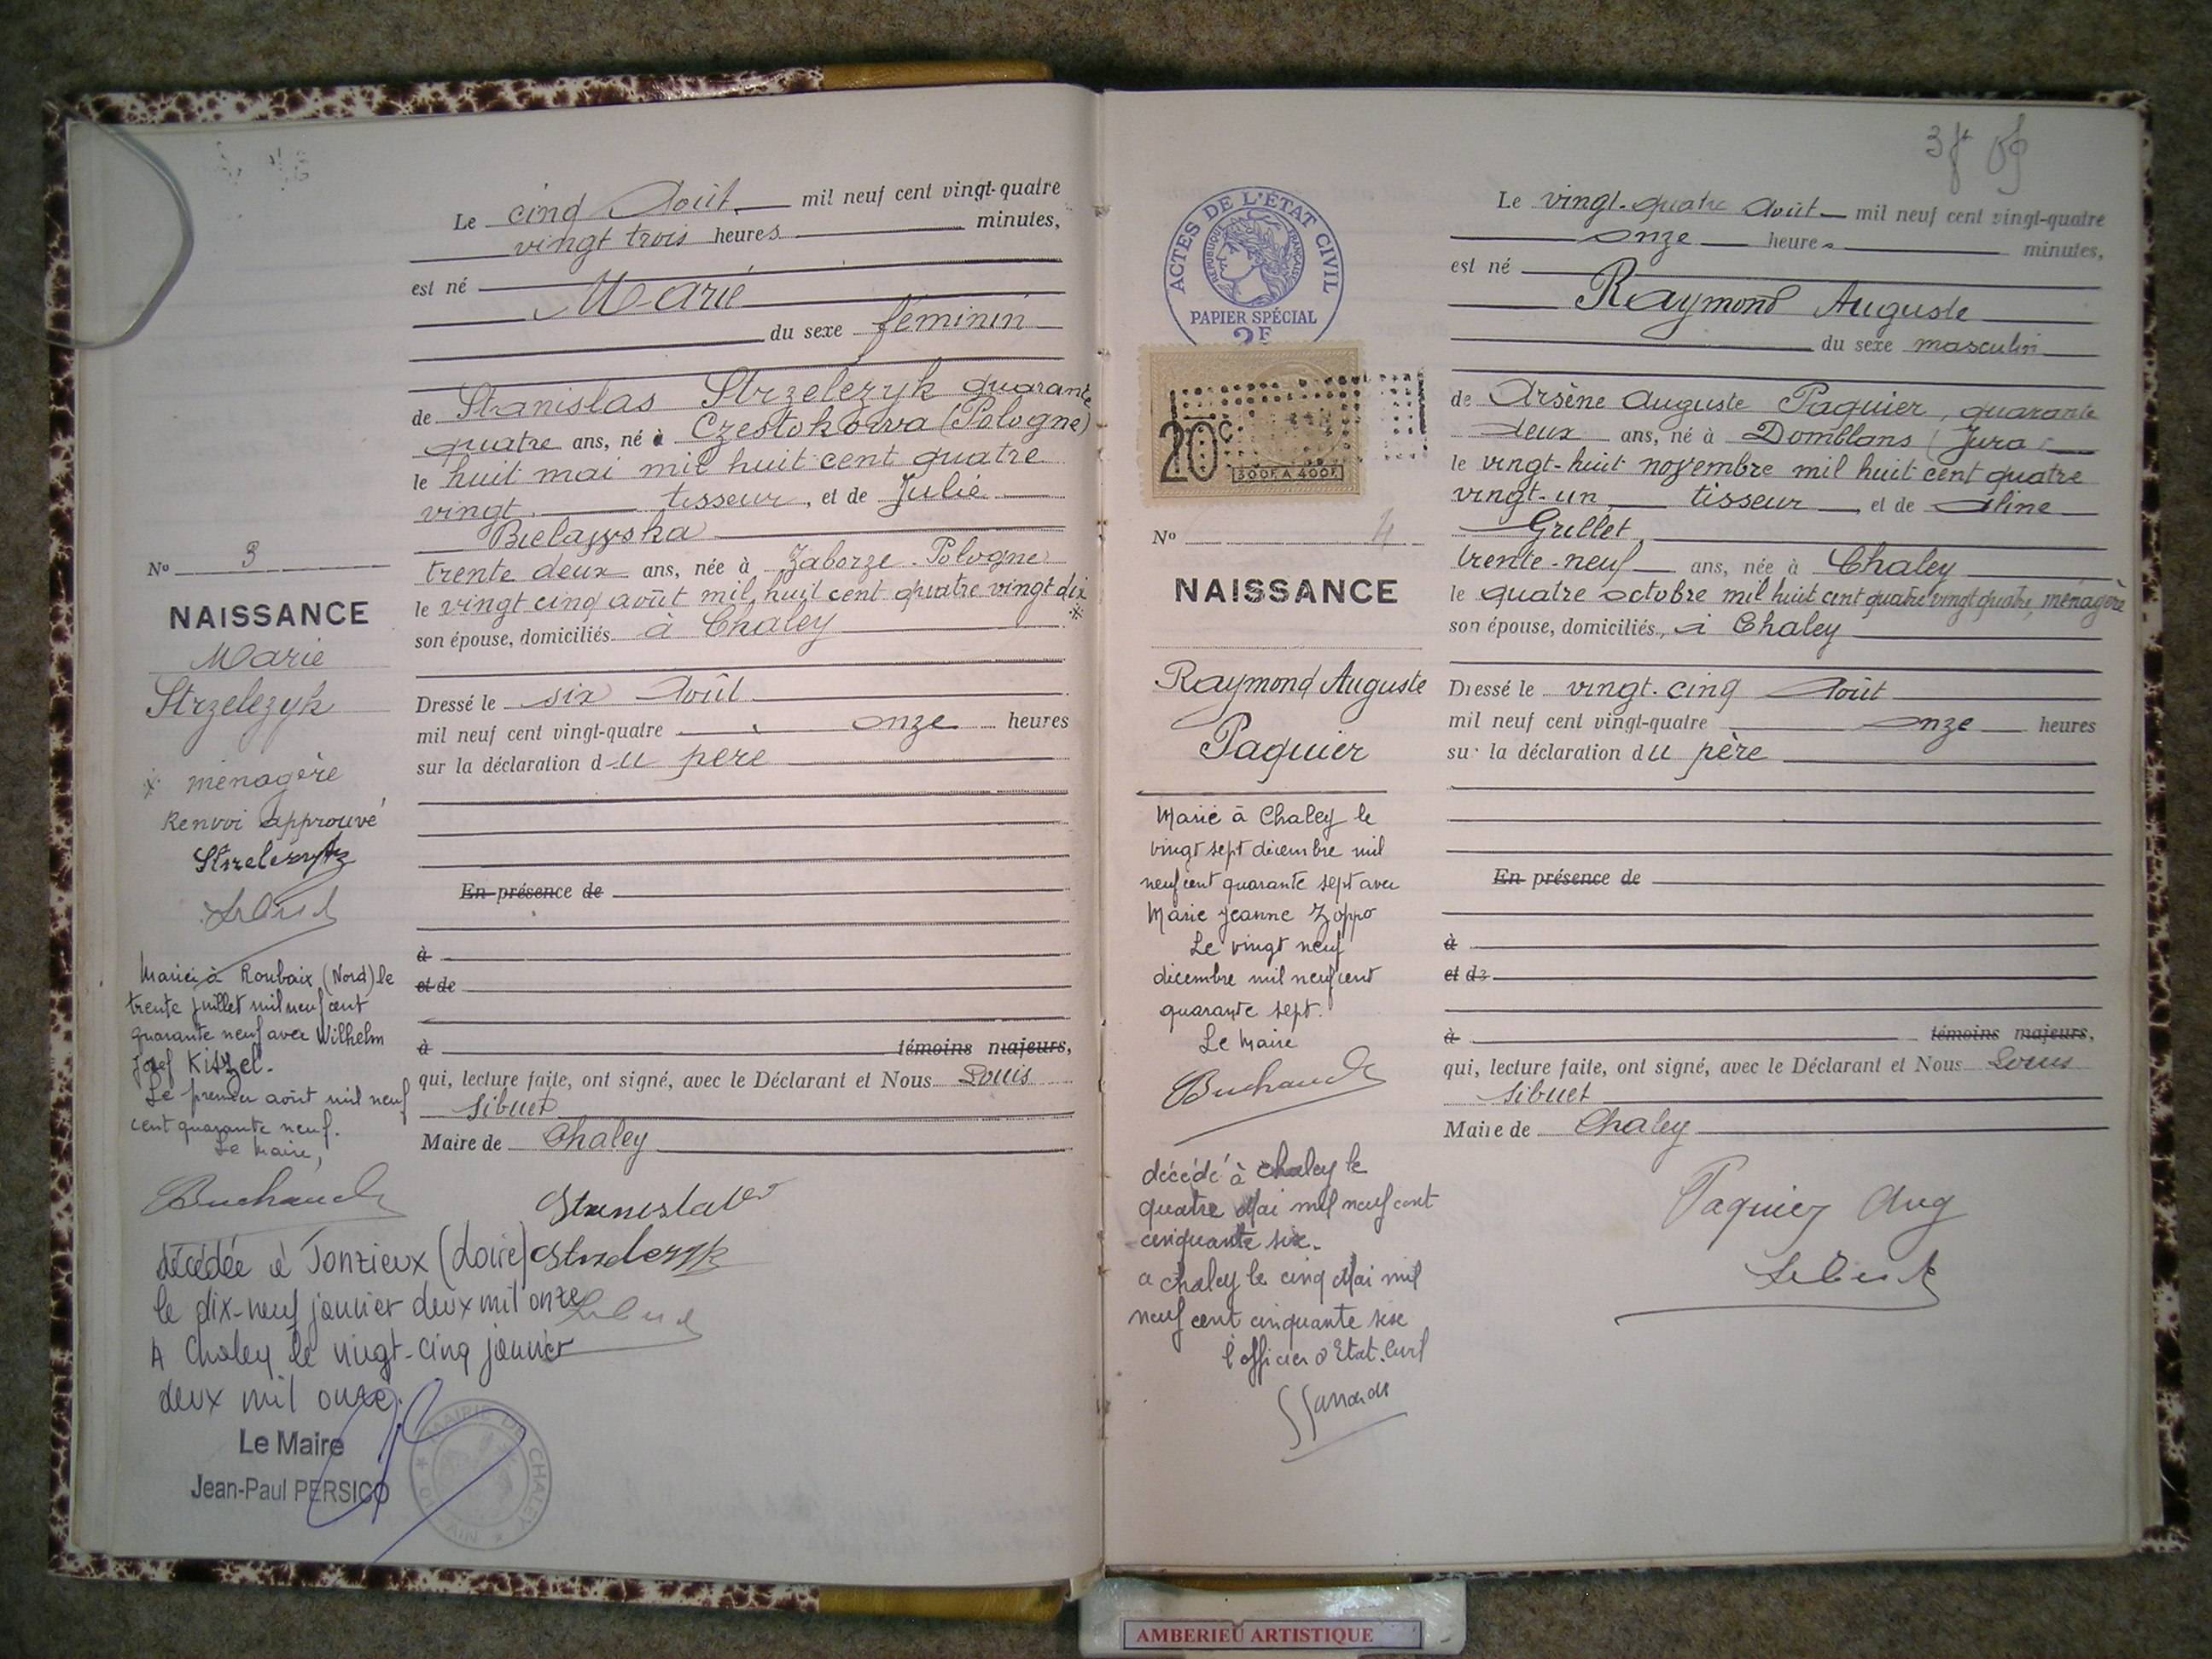 Le cinq Août mil neuf cent vingt-quatre
vingt trois heures minutes,
est né
Marie
du sexe féminin
de Stanislas Strzelezyk quarante
quatre ans, né à Czestokowa (Pologne)
le huit mai mil huit cent quatre
vingt. tisseur, et de Julie
trente deux ans, née à Zaborze. Pologne
le vingt cinq août mil huit cent quatre vingt dix *
son épouse, domiciliés à Chaley
Dressé le six Août
mil neuf cent vingt-quatre onze heures
sur la déclaration du père
En présence de
à
et de
à témoins majeurs,
qui, lecture faite, ont signé, avec le Déclarant et Nous Louis
Sibuet
Maire de Chaley
Stanislaw
No 3
NAISSANCE
Marie
Strzelezyk
* ménagère
Renvoi approuvé
Mariée à Roubaix (Nord) le
trente juillet mil neuf cent
quarante neuf avec Wilhelm
Josef Kiszel.
Le premier août mil neuf
cent quarante neuf.
Le Maire,
Buchaud
décédée à Jonzieux (Loire)
le dix-neuf janvier deux mil onze
A Chaley le vingt-cinq janvier
deux mil onze.
Le Maire
Jean-Paul PERSICO
MAIRIE DE CHALEY
* AIN *
3f
ACTES DE L'ÉTAT CIVIL
RÉPUBLIQUE FRANÇAISE
PAPIER SPÉCIAL
2F
20c
300F. A 400F.
No 4
NAISSANCE
Raymond Auguste
Paquier
Marié à Chaley le
vingt sept décembre mil
neuf cent quarante sept avec
Marie Jeanne Zoppo
Le vingt neuf
décembre mil neuf cent
quarante sept.
Le Maire
Buchaud
décédé à Chaley le
quatre Mai mil neuf cent
cinquante six.
a Chaley le cinq Mai mil
neuf cent cinquante six
l'officier d'Etat. Civil
Le vingt-quatre Août mil neuf cent vingt-quatre
onze heures minutes,
est né
Raymond Auguste
du sexe masculin
de Arsène Auguste Paquier, quarante
deux ans, né à Domblans (Jura)
le vingt-huit novembre mil huit cent quatre
vingt-un, tisseur, et de Aline
Grillet,
trente-neuf ans, née à Chaley
le quatre octobre mil huit cent quatre vingt quatre, ménagère
son épouse, domiciliés, à Chaley
Dressé le vingt-cinq Août
mil neuf cent vingt-quatre onze heures
sur la déclaration du père
En présence de
à
et de
à témoins majeurs,
qui, lecture faite, ont signé, avec le Déclarant et Nous Louis
Sibuet
Maire de Chaley
Paquier Aug
Sibuet
AMBERIEU ARTISTIQUE